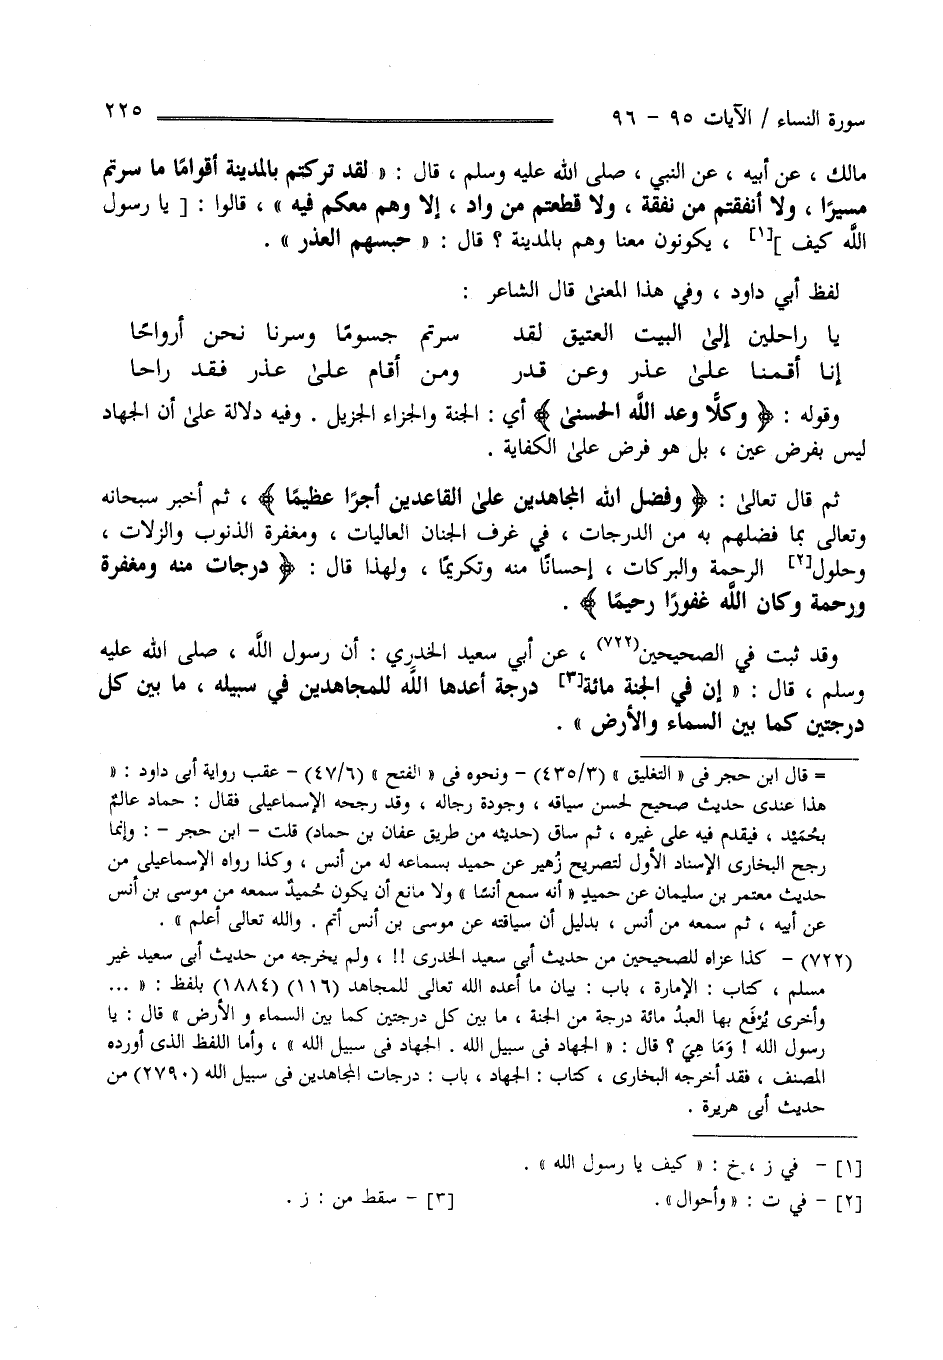 سورة النساء / الآيات ٩٥ - ٩٦ ٢٢٥
مالك ، عن أبيه ، عن النبي ، صلى الله عليه وسلم ، قال : « لقد تركتم بالمدينة أقوامًا ما سرتم
مسيرًا ، ولا أنفقتم من نفقة ، ولا قطعتم من واد ، إلا وهم معكم فيه » ، قالوا : [ يا رسول
اللَّه كيف ][١] ، يكونون معنا وهم بالمدينة ؟ قال : « حبسهم العذر » .
لفظ أبي داود ، وفي هذا المعنىٰ قال الشاعر :
يا راحلين إلىٰ البيت العتيق لقد سرتم جسومًا وسرنا نحن أرواحًا
إنا أقمنا علىٰ عذر وعن قدر ومن أقام علىٰ عذر فقد راحا
وقوله : ﴿ وكلًّا وعد اللَّه الحسنىٰ ﴾ أي : الجنة والجزاء الجزيل . وفيه دلالة علىٰ أن الجهاد
ليس بفرض عين ، بل هو فرض علىٰ الكفاية .
ثم قال تعالىٰ : ﴿ وفضل الله المجاهدين علىٰ القاعدين أجرًا عظيمًا ﴾ ، ثم أخبر سبحانه
وتعالى بما فضلهم به من الدرجات ، في غرف الجنان العاليات ، ومغفرة الذنوب والزلات ،
وحلول[٢] الرحمة والبركات ، إحسانًا منه وتكريمًا ، ولهذا قال : ﴿ درجات منه ومغفرة
ورحمة وكان اللَّه غفورًا رحيمًا ﴾ .
وقد ثبت في الصحيحين(٧٢٢) ، عن أبي سعيد الخدري : أن رسول اللَّه ، صلى الله عليه
وسلم ، قال : « إن في الجنة مائة[٣] درجة أعدها اللَّه للمجاهدين في سبيله ، ما بين كل
درجتين كما بين السماء والأرض » .
= قال ابن حجر فى « التغليق » (٤٣٥/٣) - ونحوه فى « الفتح » (٤٧/٦) - عقب رواية أبى داود : «
هذا عندى حديث صحيح لحسن سياقه ، وجودة رجاله ، وقد رجحه الإسماعيلى فقال : حماد عالمٌ
بحُمَيْد ، فيقدم فيه على غيره ، ثم ساق (حديثه من طريق عفان بن حماد) قلت - ابن حجر - : وإنما
رجح البخارى الإسناد الأول لتصريح زُهير عن حميد بسماعه له من أنس ، وكذا رواه الإسماعيلى من
حديث معتمر بن سليمان عن حميدٍ « أنه سمع أنسًا » ولا مانع أن يكون حُميدٌ سمعه من موسى بن أنس
عن أبيه ، ثم سمعه من أنس ، بدليل أن سياقته عن موسى بن أنس أتم . والله تعالى أعلم » .
(٧٢٢) - كذا عزاه للصحيحين من حديث أبى سعيد الخدرى !! ، ولم يخرجه من حديث أبى سعيد غير
مسلم ، كتاب : الإمارة ، باب : بيان ما أعده الله تعالى للمجاهد (١١٦) (١٨٨٤) بلفظ : « ...
وأخرى يُرْفَع بها العبدُ مائة درجة من الجنة ، ما بين كل درجتين كما بين السماء و الأرض » قال : يا
رسول الله ! وَمَا هِيَ ؟ قال : « الجهاد فى سبيل الله . الجهاد فى سبيل الله » ، وأما اللفظ الذى أورده
المصنف ، فقد أخرجه البخارى ، كتاب : الجهاد ، باب : درجات المجاهدين فى سبيل الله (٢٧٩٠) من
حديث أبى هريرة .
[١] - في ز ، خ : « كيف يا رسول الله » .
[٢] - في ت : «وأحوال». [٣] - سقط من : ز .